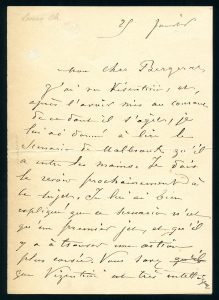 25 janvier
Mon cher Bergerat
J'ai vu Vizentini, et,
après l'avoir mis au courant
de ce dont il s'agit, je
lui ai donné à lire le
Scenario de Malbrouk qu'il
a entre les mains. Je dois
le revoir prochainement à
ce sujet. Je lui ai bien
expliqué que ce scenario n'est
qu'un premier jet, et qu'il
y a à trouver une action
plus corsée. Vous savez
que Vizentini est très intelligent